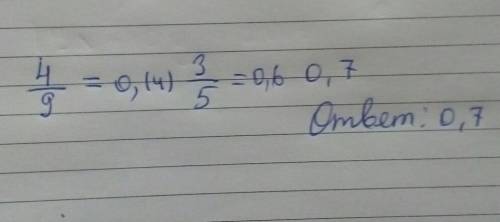 4/9 = 0,(4) 3/5 = 0,6 0,7
Ответ: 0,7